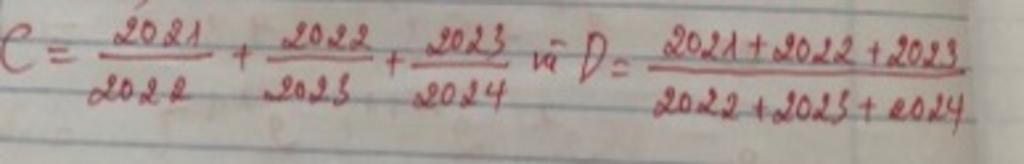 C = 2021/2022 + 2022/2023 + 2023/2024 và D = (2021+2022+2023)/(2022+2023+2024)